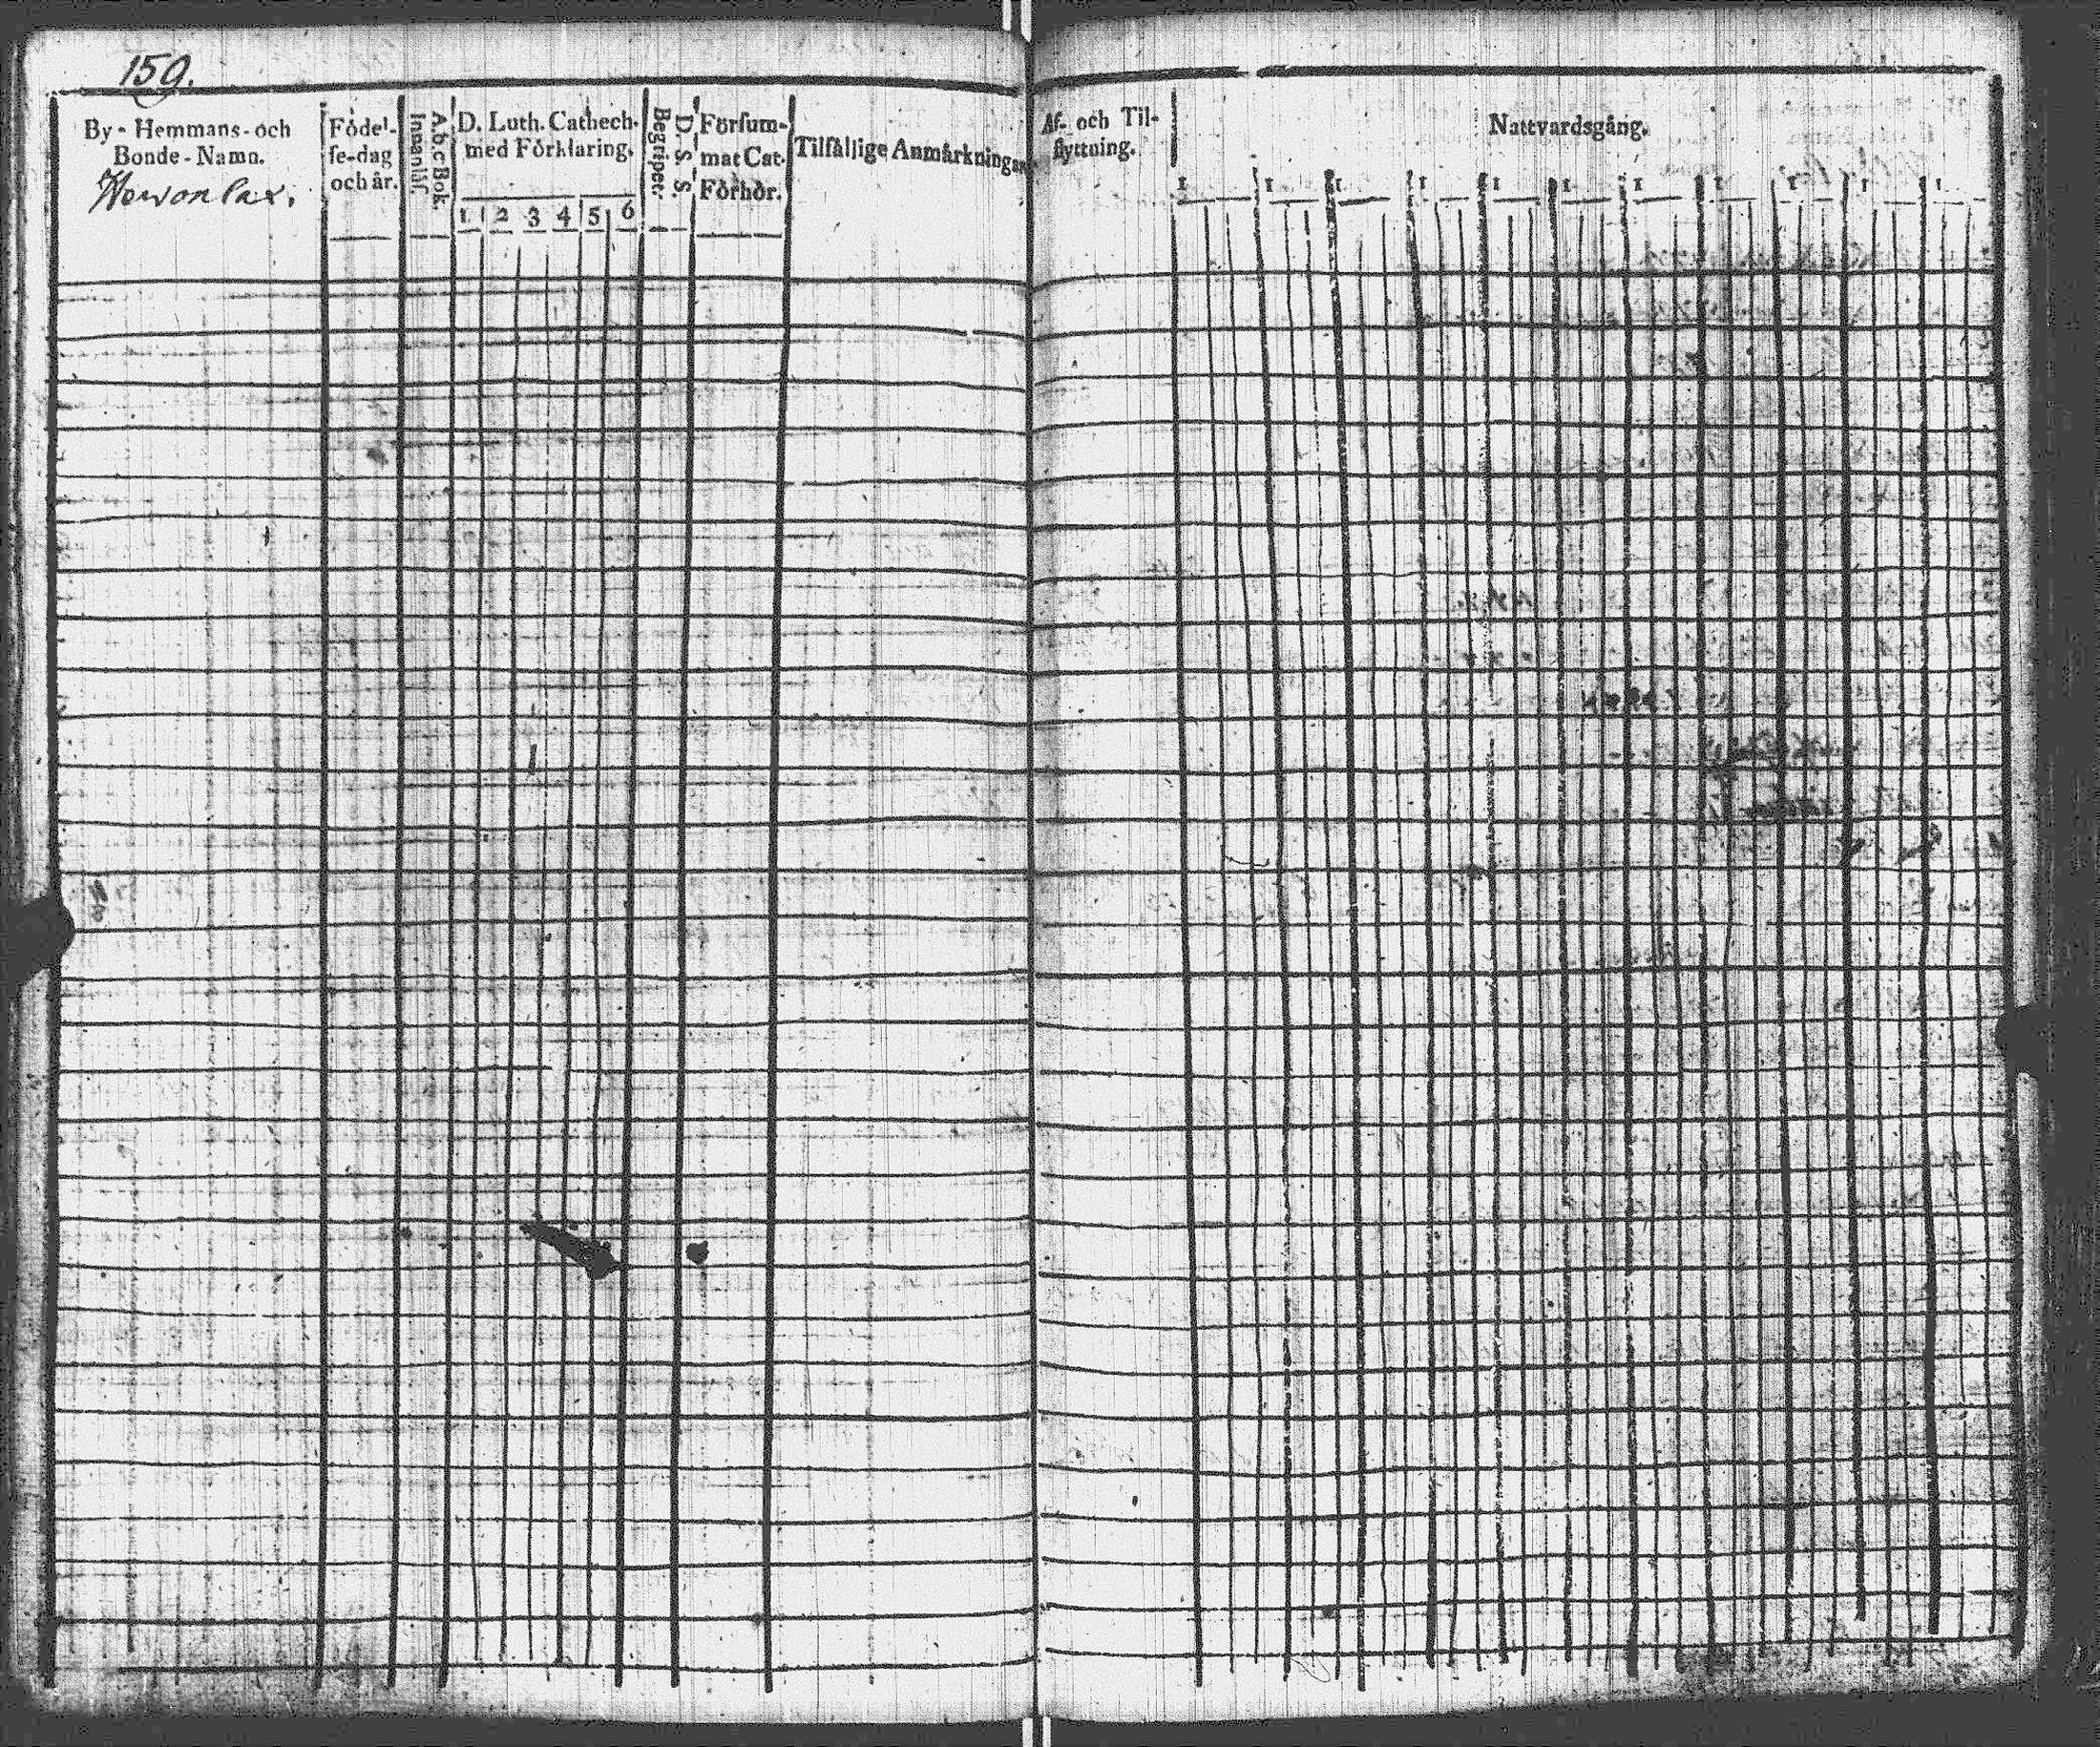 159.
By-Hemmans-och
Bonde-Namn.
Födel-
se-dag
och år.
A.b.c Bok.
Innanläs.
D. Luth. Cathech.
med Förklaring.
1 2 3 4 5 6
D. S. S.
Begriper.
Försum-
mat Cat.
Förhör.
Tilfällige Anmärkningar.
Af- och Til-
flyttning.
Nattvardsgång.
1 1 1 1 1 1 1 1 1 1 1